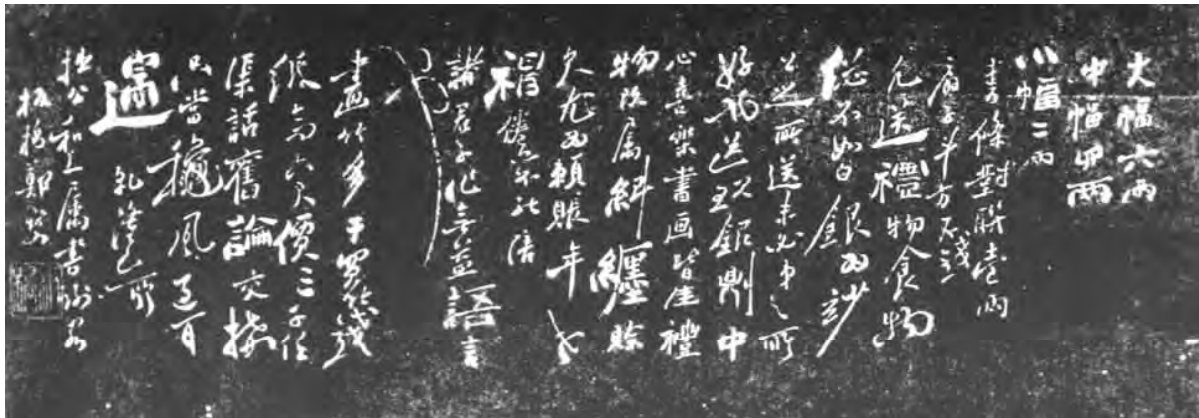 大幅六兩
中幅四兩
小幅二兩
書條對聯壹兩
扇子斗方五錢
凡送禮物食物
總不如白銀為妙
公之所送未必弟之所
好也送現銀則中
心喜樂書画皆佳禮
物既屬糾纏賒
欠尤為賴賬年老
神倦不能陪
諸君子作無益語言
也
畫竹多于買竹錢
紙高六尺價三千任
渠話舊論交接
只當穐風過耳
邊 乾隆己卯
拙公和上屬書謝客
板橋鄭燮